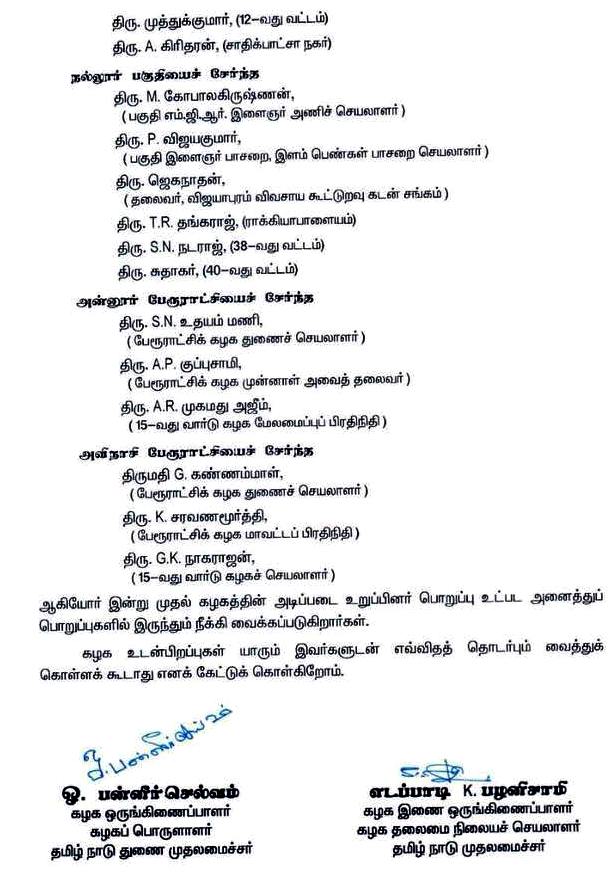 திரு. முத்துக்குமார், (12-வது வட்டம்)
திரு. A. கிரிதரன், (சாதிக்பாட்சா நகர்)
நல்லூர் பகுதியைச் சேர்ந்த
திரு. M. கோபாலகிருஷ்ணன்,
( பகுதி எம்.ஜி.ஆர். இளைஞர் அணிச் செயலாளர் )
திரு. P. விஜயகுமார்,
( பகுதி இளைஞர் பாசறை, இளம் பெண்கள் பாசறை செயலாளர் )
திரு. ஜெகநாதன்,
( தலைவர், விஜயாபுரம் விவசாய கூட்டுறவு கடன் சங்கம் )
திரு. T.R. தங்கராஜ், (ராக்கியாபாளையம்)
திரு. S.N. நடராஜ், (38-வது வட்டம்)
திரு. சுதாகர், (40-வது வட்டம்)
அன்னூர் பேரூராட்சியைச் சேர்ந்த
திரு. S.N. உதயம் மணி,
( பேரூராட்சிக் கழக துணைச் செயலாளர் )
திரு. A.P. குப்புசாமி,
( பேரூராட்சிக் கழக முன்னாள் அவைத் தலைவர் )
திரு. A.R. முகமது அஜீம்,
( 15-வது வார்டு கழக மேலமைப்புப் பிரதிநிதி )
அவிநாசி பேரூராட்சியைச் சேர்ந்த
திருமதி G. கண்ணம்மாள்,
( பேரூராட்சிக் கழக துணைச் செயலாளர் )
திரு. K. சரவணமூர்த்தி,
( பேரூராட்சிக் கழக மாவட்டப் பிரதிநிதி )
திரு. G.K. நாகராஜன்,
( 15-வது வார்டு கழகச் செயலாளர் )
ஆகியோர் இன்று முதல் கழகத்தின் அடிப்படை உறுப்பினர் பொறுப்பு உட்பட அனைத்துப்
பொறுப்புகளில் இருந்தும் நீக்கி வைக்கப்படுகிறார்கள்.
கழக உடன்பிறப்புகள் யாரும் இவர்களுடன் எவ்விதத் தொடர்பும் வைத்துக்
கொள்ளக் கூடாது எனக் கேட்டுக் கொள்கிறோம்.
ஓ. பன்னீர்செல்வம்
ஓ. பன்னீர்செல்வம்
கழக ஒருங்கிணைப்பாளர்
கழகப் பொருளாளர்
தமிழ் நாடு துணை முதலமைச்சர்
எடப்பாடி K. பழனிசாமி
கழக இணை ஒருங்கிணைப்பாளர்
கழக தலைமை நிலையச் செயலாளர்
தமிழ் நாடு முதலமைச்சர்